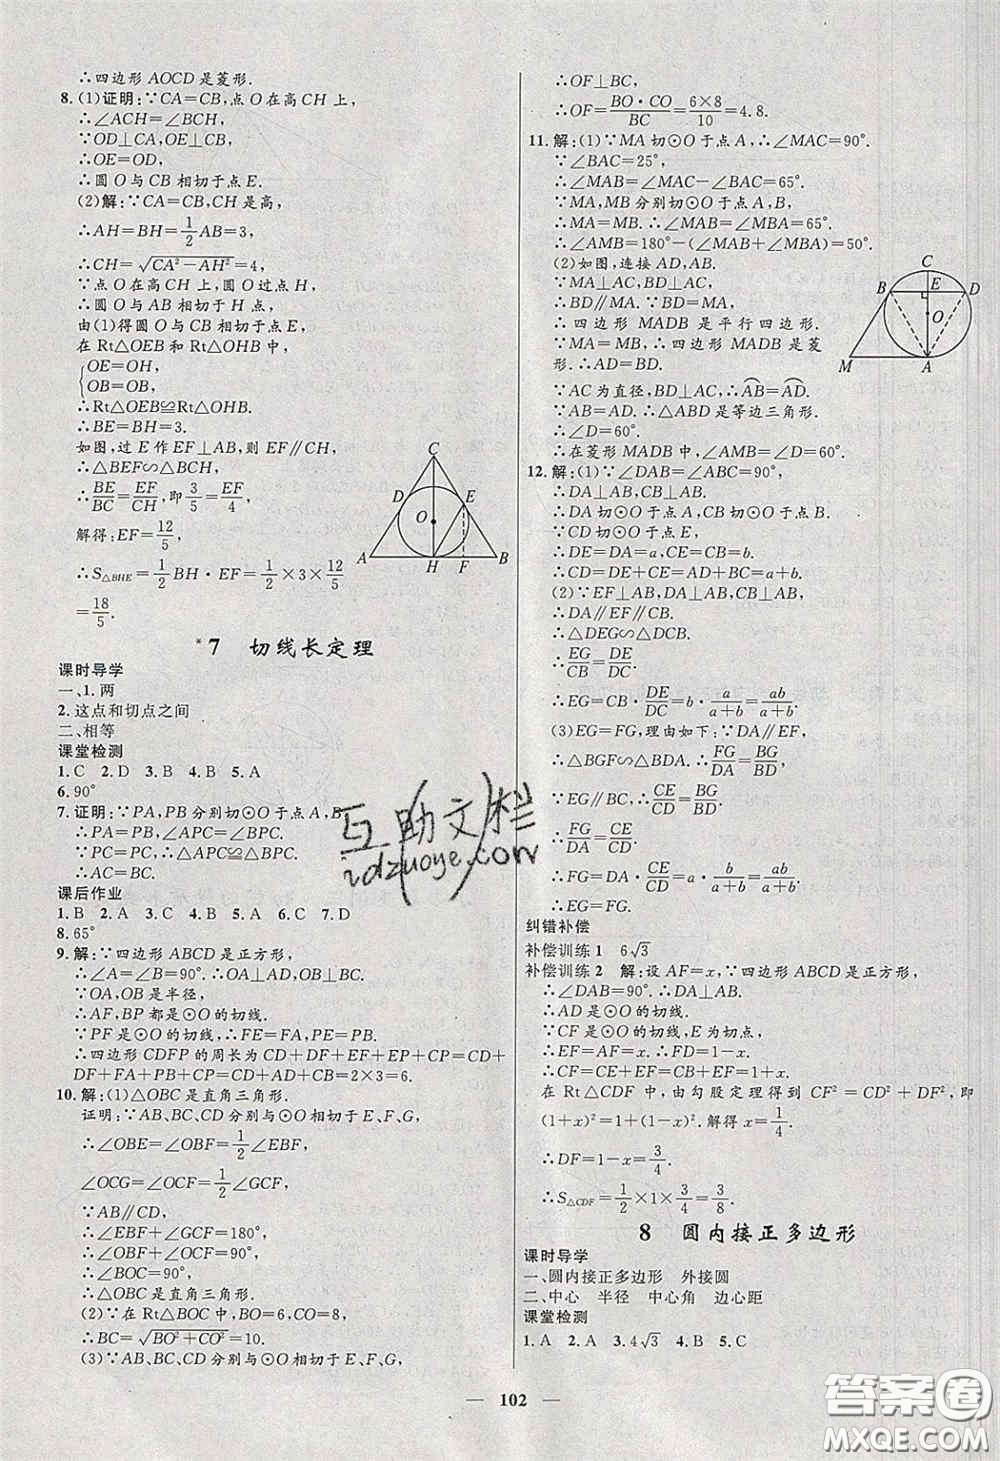 ∴四边形 AOCD 是菱形.
8. (1)证明:∵CA=CB,点 O 在高 CH 上,
∴∠ACH=∠BCH.
∵OD⊥CA,OE⊥CB,
∴OE=OD,
∴圆 O 与 CB 相切于点 E.
(2)解:∵CA=CB,CH 是高,
∴AH=BH=1/2AB=3,
∴CH=√(CA²-AH²)=4,
∵点 O 在高 CH 上,圆 O 过点 H,
∴圆 O 与 AB 相切于 H 点,
由(1)得圆 O 与 CB 相切于点 E,
在 Rt△OEB 和 Rt△OHB 中,
{OE=OH,
OB=OB,
∴Rt△OEB≌Rt△OHB.
∴BE=BH=3.
如图,过 E 作 EF⊥AB,则 EF∥CH,
∴△BEF∽△BCH.
∴BE/BC=EF/CH,即 3/5=EF/4,
解得:EF=12/5,
∴S△BHE=1/2BH·EF=1/2×3×12/5
=18/5.
C
D E
O
A H F B
*7 切线长定理
课时导学
一、1.两
2.这点和切点之间
二、相等
课堂检测
1.C 2.D 3.B 4.B 5.A
6.90°
7.证明:∵PA,PB 分别切⊙O 于点 A,B,
∴PA=PB,∠APC=∠BPC.
∵PC=PC,∴△APC≌△BPC.
∴AC=BC.
课后作业
1.B 2.A 3.C 4.A 5.A 6.C 7.D
8.65°
9.解:∵四边形 ABCD 是正方形,
∴∠A=∠B=90°.∴OA⊥AF,OB⊥BP.
∵OA,OB 是半径,
∴AF,BP 都是⊙O 的切线.
∵PF 是⊙O 的切线,∴FE=FA,PE=PB.
∴四边形 CDFP 的周长为 CD+DF+EF+EP+CP=CD+
DF+FA+PB+CP=CD+DA+CB=2×3=6.
10.解:(1)△OBC 是直角三角形.
证明:∵AB,BC,CD 分别与⊙O 相切于 E、F、G,
∴∠OBE=∠OBF=1/2∠EBF,
∠OCG=∠OCF=1/2∠GCF,
∵AB∥CD,
∴∠EBF+∠GCF=180°,
∴∠OBF+∠OCF=90°,
∴∠BOC=90°,
∴△OBC 是直角三角形.
(2)∵在 Rt△BOC 中,BO=6,CO=8,
∴BC=√(BO²+CO²)=10.
(3)∵AB、BC、CD 分别与⊙O 相切于 E、F、G,
∴OF⊥BC,
∴OF=BO·CO/BC=6×8/10=4.8.
11.解:(1)∵MA 切⊙O 于点 A,∴∠MAC=90°.
∵∠BAC=25°,
∴∠MAB=∠MAC-∠BAC=65°.
∵MA,MB 分别切⊙O 于点 A,B,
∴MA=MB.∴∠MAB=∠MBA=65°.
∴∠AMB=180°-(∠MAB+∠MBA)=50°.
(2)如图,连接 AD,AB.
∵MA⊥AC,BD⊥AC,
∴BD∥MA.∵BD=MA,
∴四边形 MADB 是平行四边形.
∵MA=MB,∴四边形 MADB 是菱
形.∴AD=BD.
∵AC 为直径,BD⊥AC,∴AB=AD.
∵AB=AD.∴△ABD 是等边三角形.
∴∠D=60°.
∴在菱形 MADB 中,∠AMB=∠D=60°.
C
B E D
O
M A
12.解:(1)∵∠DAB=∠ABC=90°,
∴DA⊥AB,CB⊥AB.
∴DA 切⊙O 于点 A,CB 切⊙O 于点 B.
∵CD 切⊙O 于点 E,
∴DE=DA=a,CE=CB=b.
∴CD=DE+CE=DA+CB=a+b.
(2)∵EF⊥AB,DA⊥AB,CB⊥AB,
∴DA∥EF∥CB.
∴△DEG∽△DCB.
∴EG/CB=DE/DC.
∴EG=CB·DE/DC=b·a/(a+b)=ab/(a+b).
(3)EG=FG,理由如下:∵DA∥EF,
∴△BGF∽△BDA.∴FG/DA=BG/BD.
∵EG∥BC,∴CE/CD=BG/BD.
∴FG/DA=CE/CD.
∴FG=DA·CE/CD=a·b/(a+b)=ab/(a+b).
∴EG=FG.
纠错补偿
补偿训练 1 6√3
补偿训练 2 解:设 AF=x,∵四边形 ABCD 是正方形,
∴∠DAB=90°.∴DA⊥AB.
∴AD 是⊙O 的切线.
∵CF 是⊙O 的切线,E 为切点,
∴EF=AF=x.∴FD=1-x.
∴CF=CE+EF=CB+EF=1+x.
在 Rt△CDF 中,由勾股定理得到 CF²=CD²+DF²,即
(1+x)²=1+(1-x)².解得 x=1/4.
∴DF=1-x=3/4.
∴S△CDF=1/2×1×3/4=3/8.
8 圆内接正多边形
课时导学
一、圆内接正多边形 外接圆
二、中心 半径 中心角 边心距
课堂检测
1.A 2.A 3.4√3 4.B 5.C
102
互助文档
idzuoye.com
答案圈
MXQE.COM